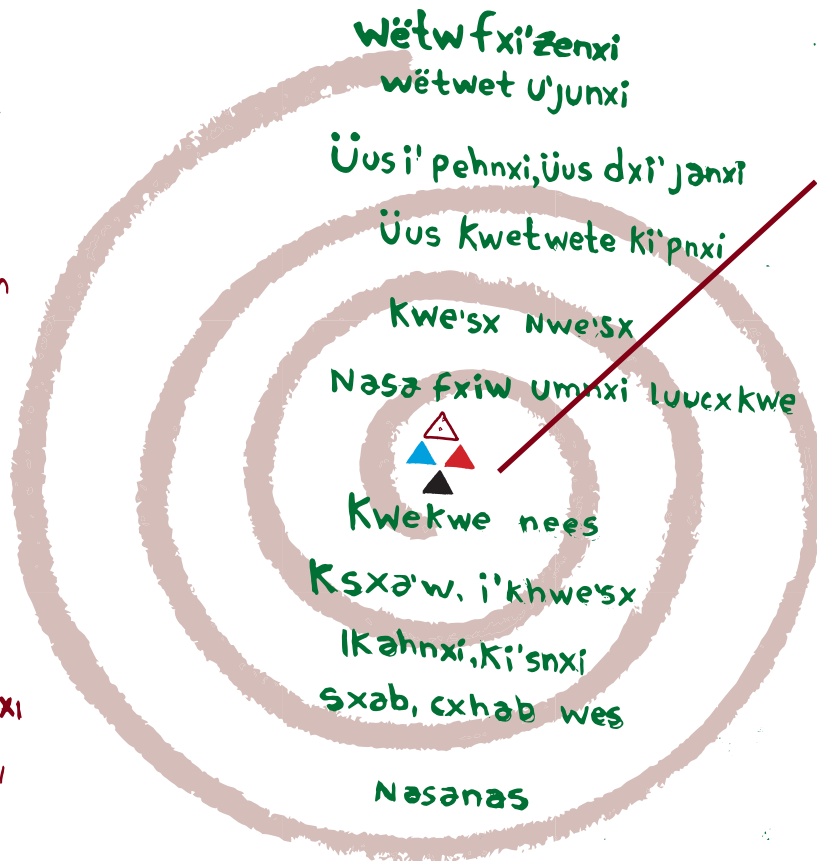 wëtw fxi'zenxi
wëtwet u'junxi
Üus i' pehnxi, üus dxi' janxi
Üus kwetwete ki'pnxi
Kwe'sx Nwe'sx
Nasa fxiw umnxi luucxkwe
Kwekwe nees
Ksxa'w, i'khwe'sx
Ikahnxi, ki'snxi
sxab, cxhab wes
Nasanas